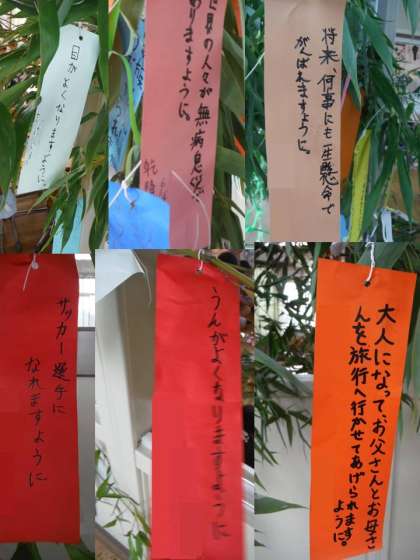 目がよくなりますように。
世界の人々が無病息災
わりますように。
将来、何事にも一生懸命で
がんばれますように。
サッカー選手に
なれますように
うんがよくなりますように
大人になってお父さんとお母さ
んを旅行へ行かせてあげられます
ように。